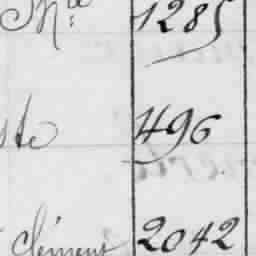 Mlle 1285
ste 496
Clément 2042